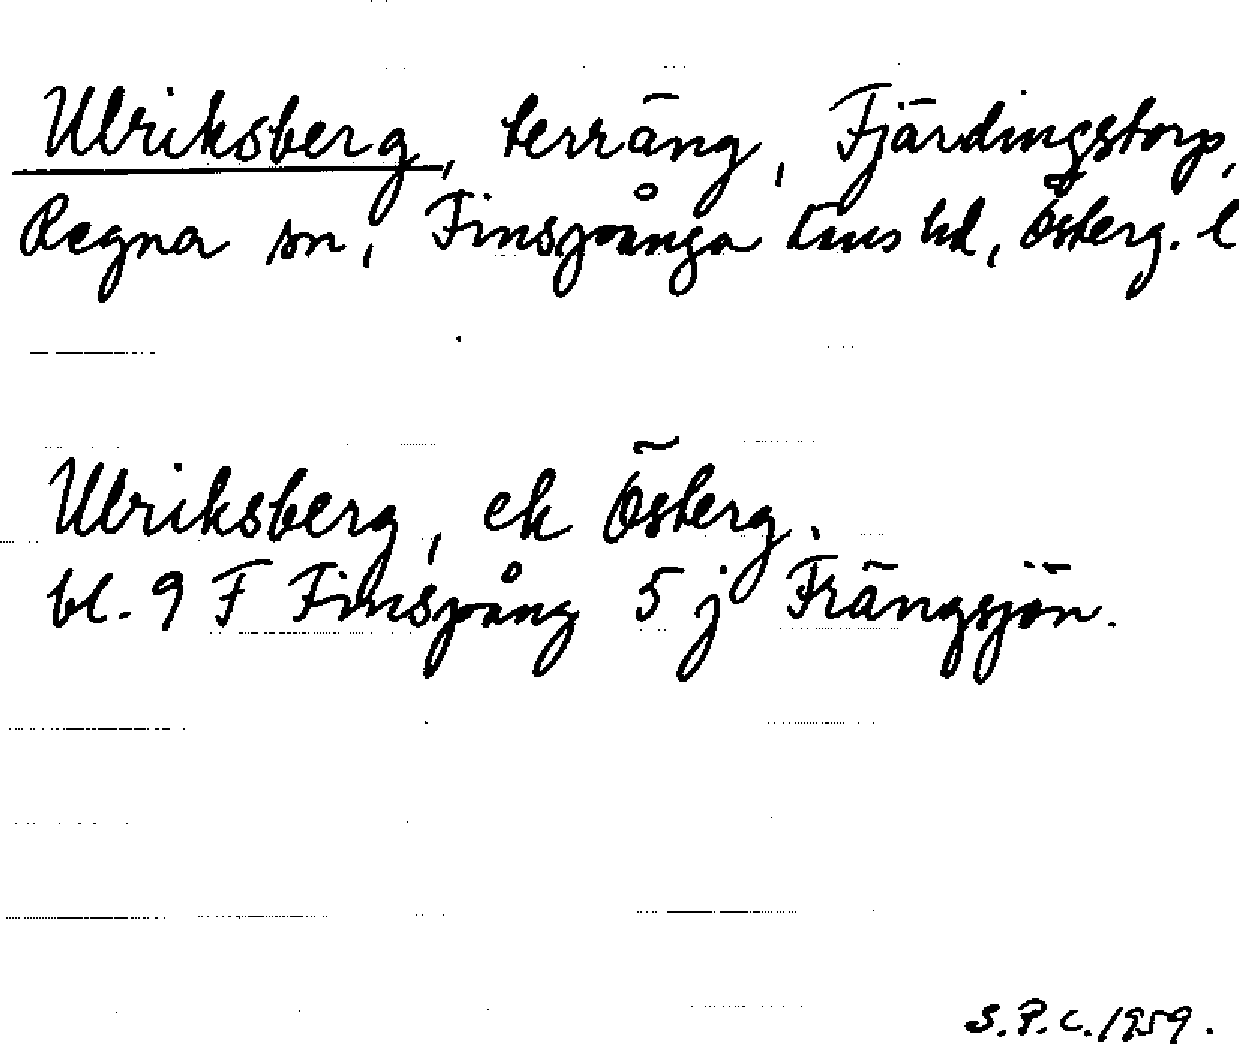 Ulriksberg, terräng, Fjärdingstorp,
Regna sn, Finspånga läns hd, Österg. l
Ulriksberg, ek Österg.
bl. 9 F Finspång 5 j Frängsjön.
S.P.C. 1959.